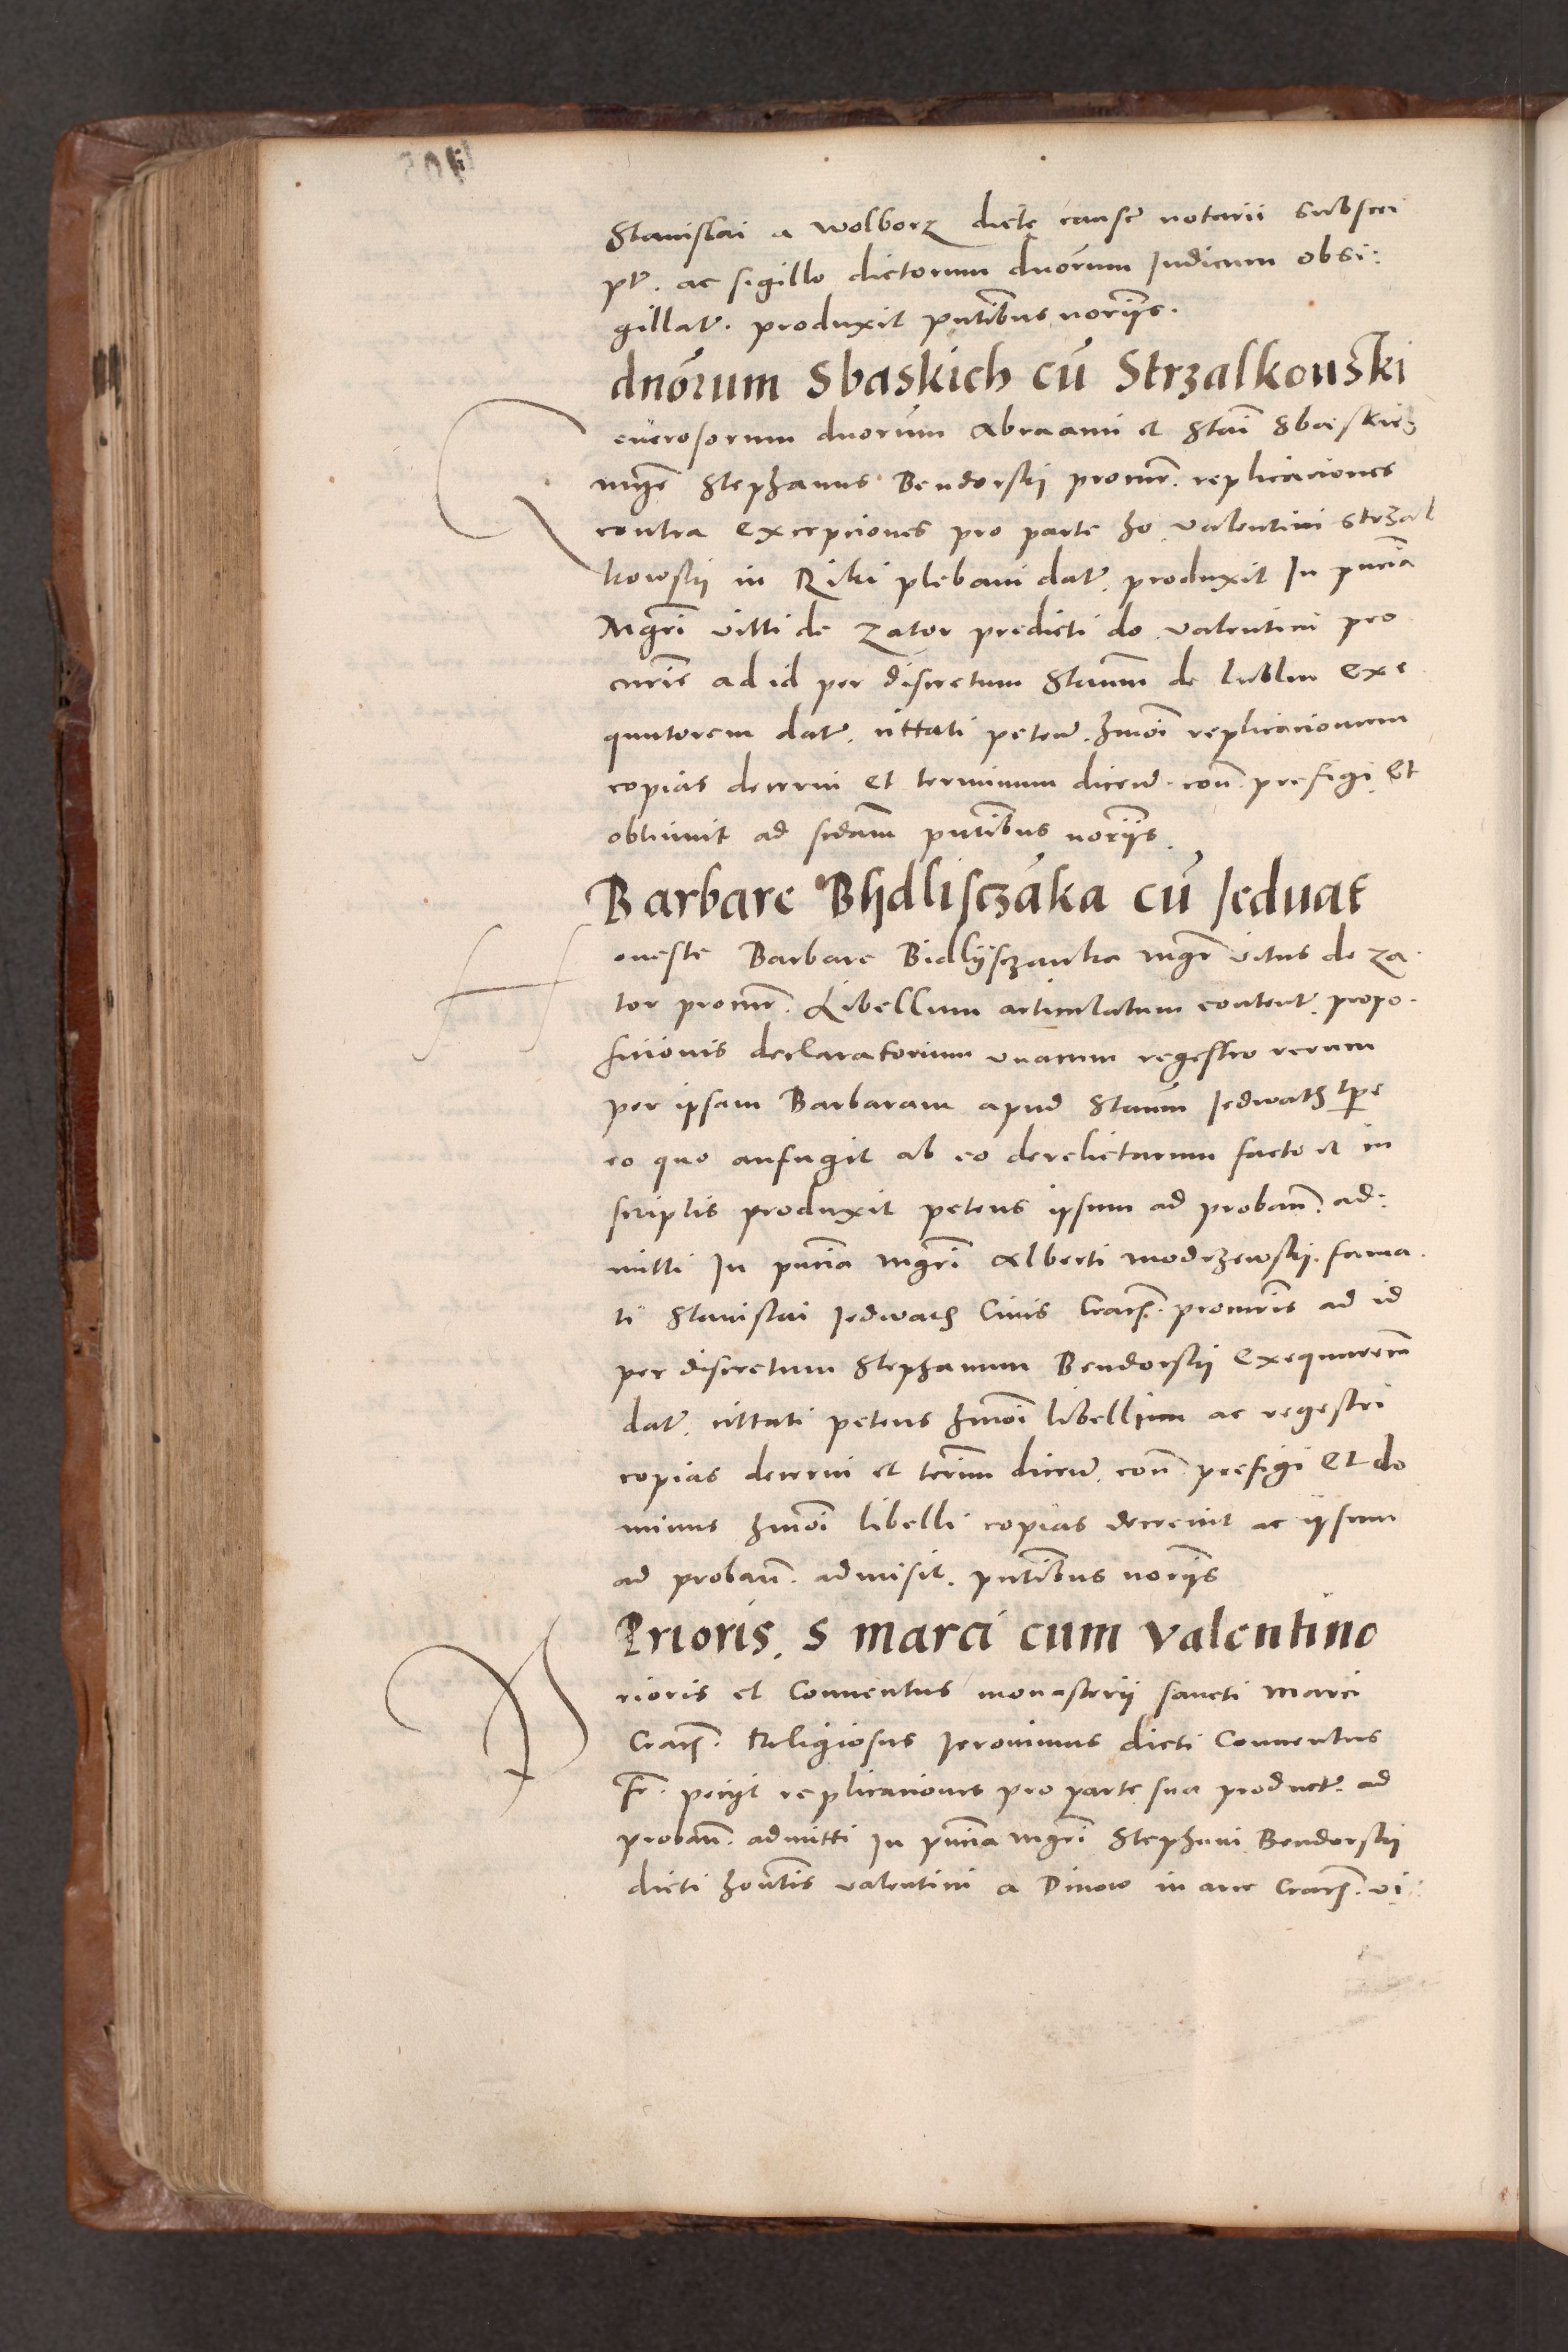 Stanislai a Wolborz dictę causę notarii subscri
pt. ac sigillo dictorum dnorum Iudicum obsi:
gillat. produxit pntibus noriis.
dnorum Sbaskich cū Strzalkouski
Generosorum dnorum Abraami et Stai Sbaskich
mgr Stephanus Bendorskij procur. replicaciones
contra excepciones pro parte ho. valentini Strzal
kowskij in Riki plebani dat. produxit In pncia
Mgri vitti de Zator predicti do. valentini pro
curis ad id per discretum Staum de lublin Exe
qutorem dat. cittati peten. hmoi replicacionum
copias decerni et terminum dicen. con. prefigi et
obtinuit ad sedam pntibus noriis.
Barbare Bydlisczāka cū Jeduat
Honeste Barbare Bidlijsczanka mgr vitus de Za.
tor procur. Libellum articulatum content. propo.
sicionis declaratorium vnacum regestro rerum
per ipsam Barbaram apud Staum Jedwath tpe
eo quo aufugit ab eo derelictarum facto et in
scriptis produxit petens ipsum ad proban. ad:
mitti In pncia mgri Alberti modrzewskij. fama.
ti Stanislai Jedwath Civis Crac. procuris ad id
per discretum Stephanum Bendorskij exequutorem
dat. cittati petens hmoi libellium ac regestri
copias decerni et terim dicen. con. prefigi Et do
minus hmoi libelli copias decrevit ac ipsum
ad proban. admisit. pntibus noriis
Prioris. S marci cum valentino
Prioris et Conuentus monasterij sancti marci
Crac. Religiosus Jeronimus dicti Conuentus
fr. pecijt replicaciones pro parte sua product. ad
proban. admitti in pncia mgri Stephani Bendorskij
dicti hontis valentini a Dinow in arce Crac. vi: